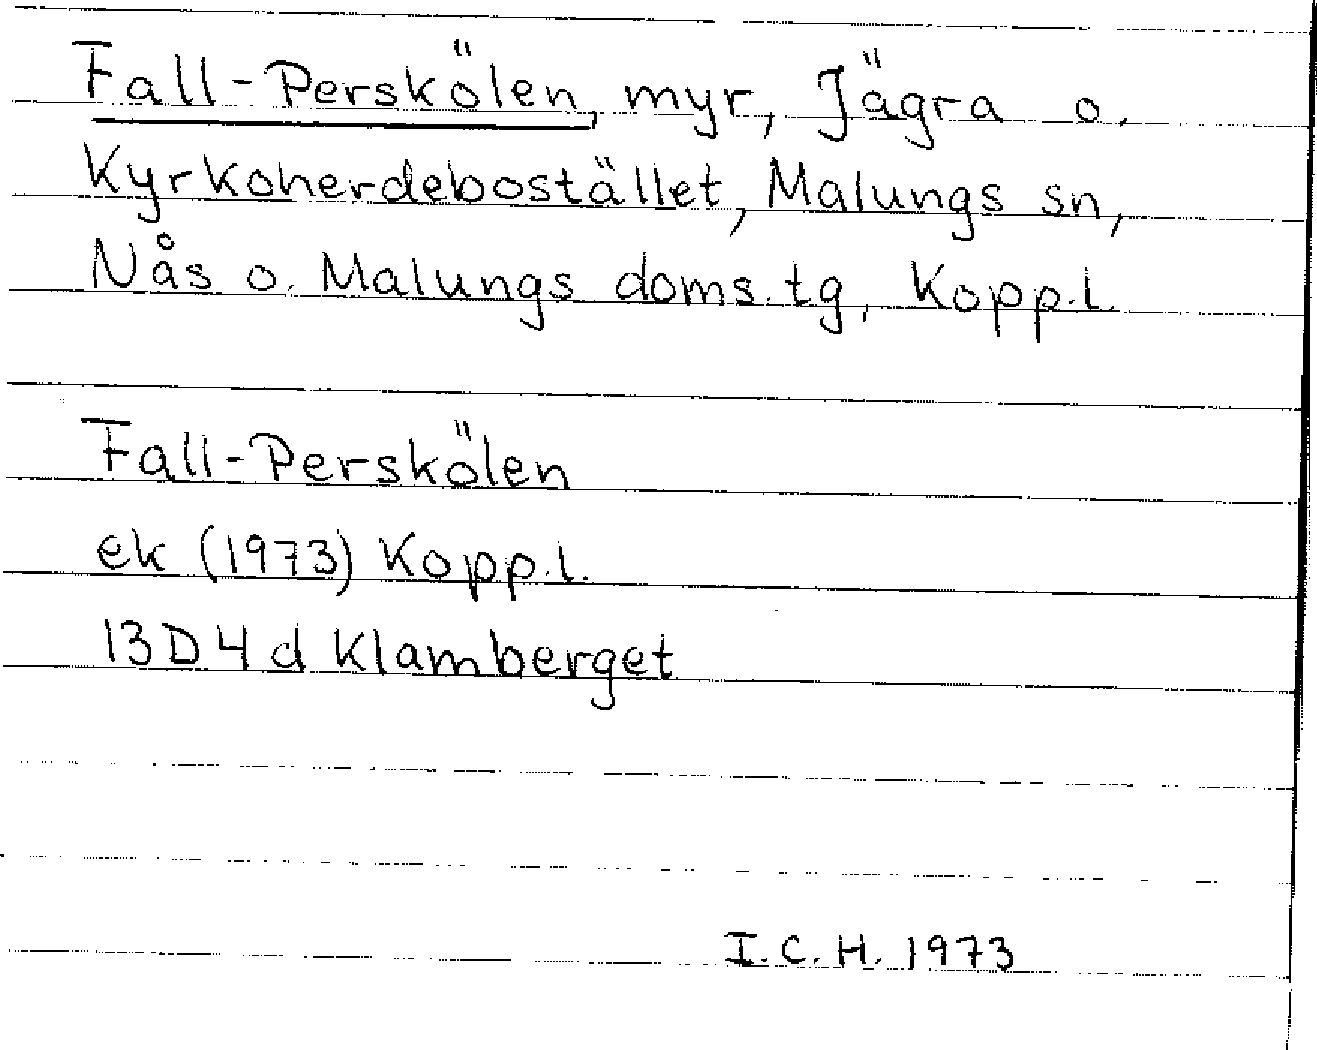 Fall-Perskölen, myr, Jägra o.
Kyrkoherdebostället, Malungs sn,
Nås o. Malungs doms.tg, Kopp.l.
Fall-Perskölen
ek (1973) Kopp.l.
13D4d Klamberget
I.C.H. 1973